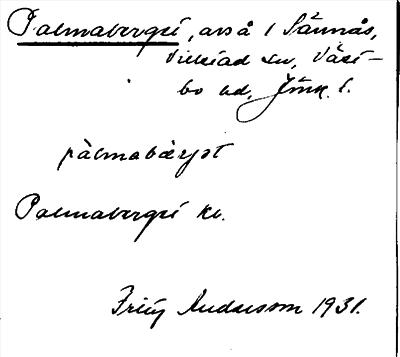 Palmaberget, avs å 1 Sännås,
Villstad sn, Väst-
bo hd, Jönk. l.
pàlmabærjət
Palmaberget kb.
Frity Andersson 1931.